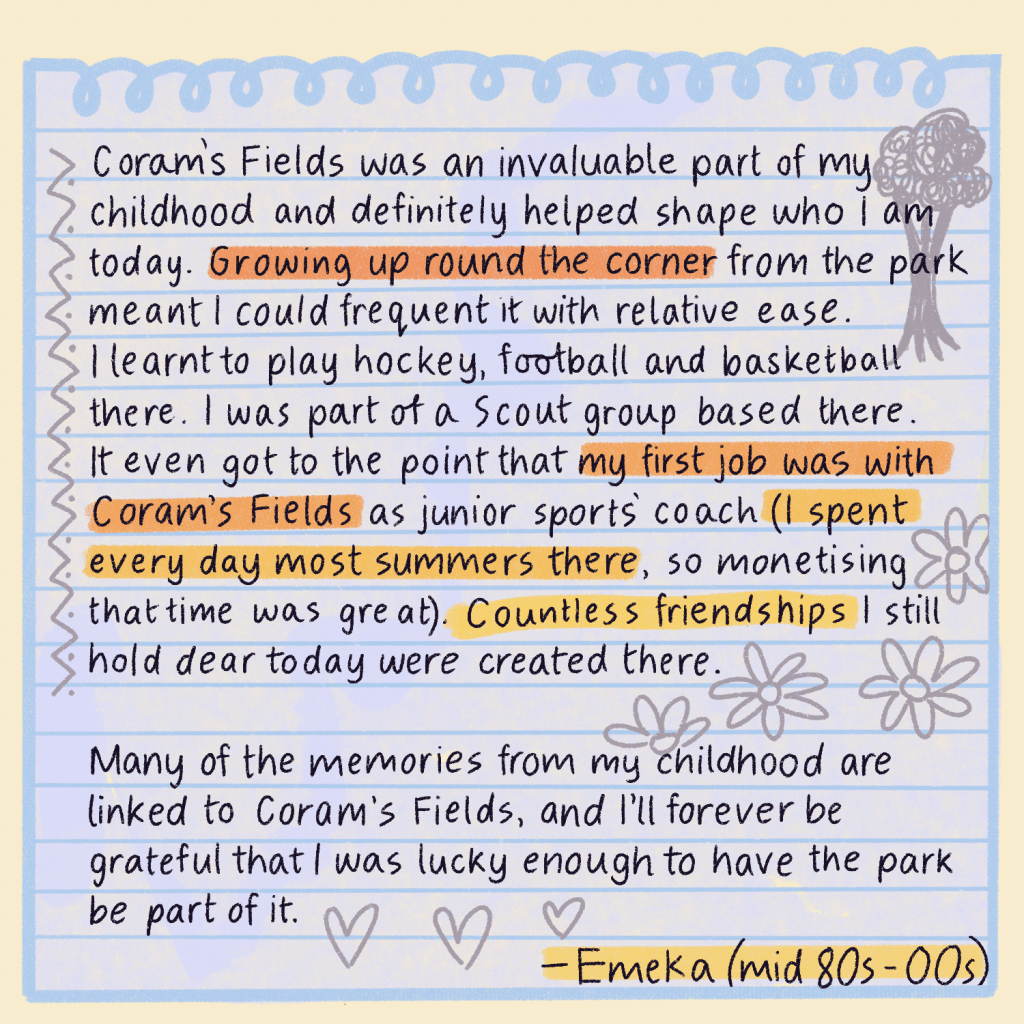 Coram's Fields was an invaluable part of my
childhood and definitely helped shape who I am
today. Growing up round the corner from the park
meant I could frequent it with relative ease.
I learnt to play hockey, football and basketball
there. I was part of a Scout group based there.
It even got to the point that my first job was with
Coram's Fields as junior sports' coach (I spent
every day most summers there, so monetising
that time was great). Countless friendships I still
hold dear today were created there.
Many of the memories from my childhood are
linked to Coram's Fields, and I'll forever be
grateful that I was lucky enough to have the park
be part of it.
- Emeka (mid 80s - 00s)